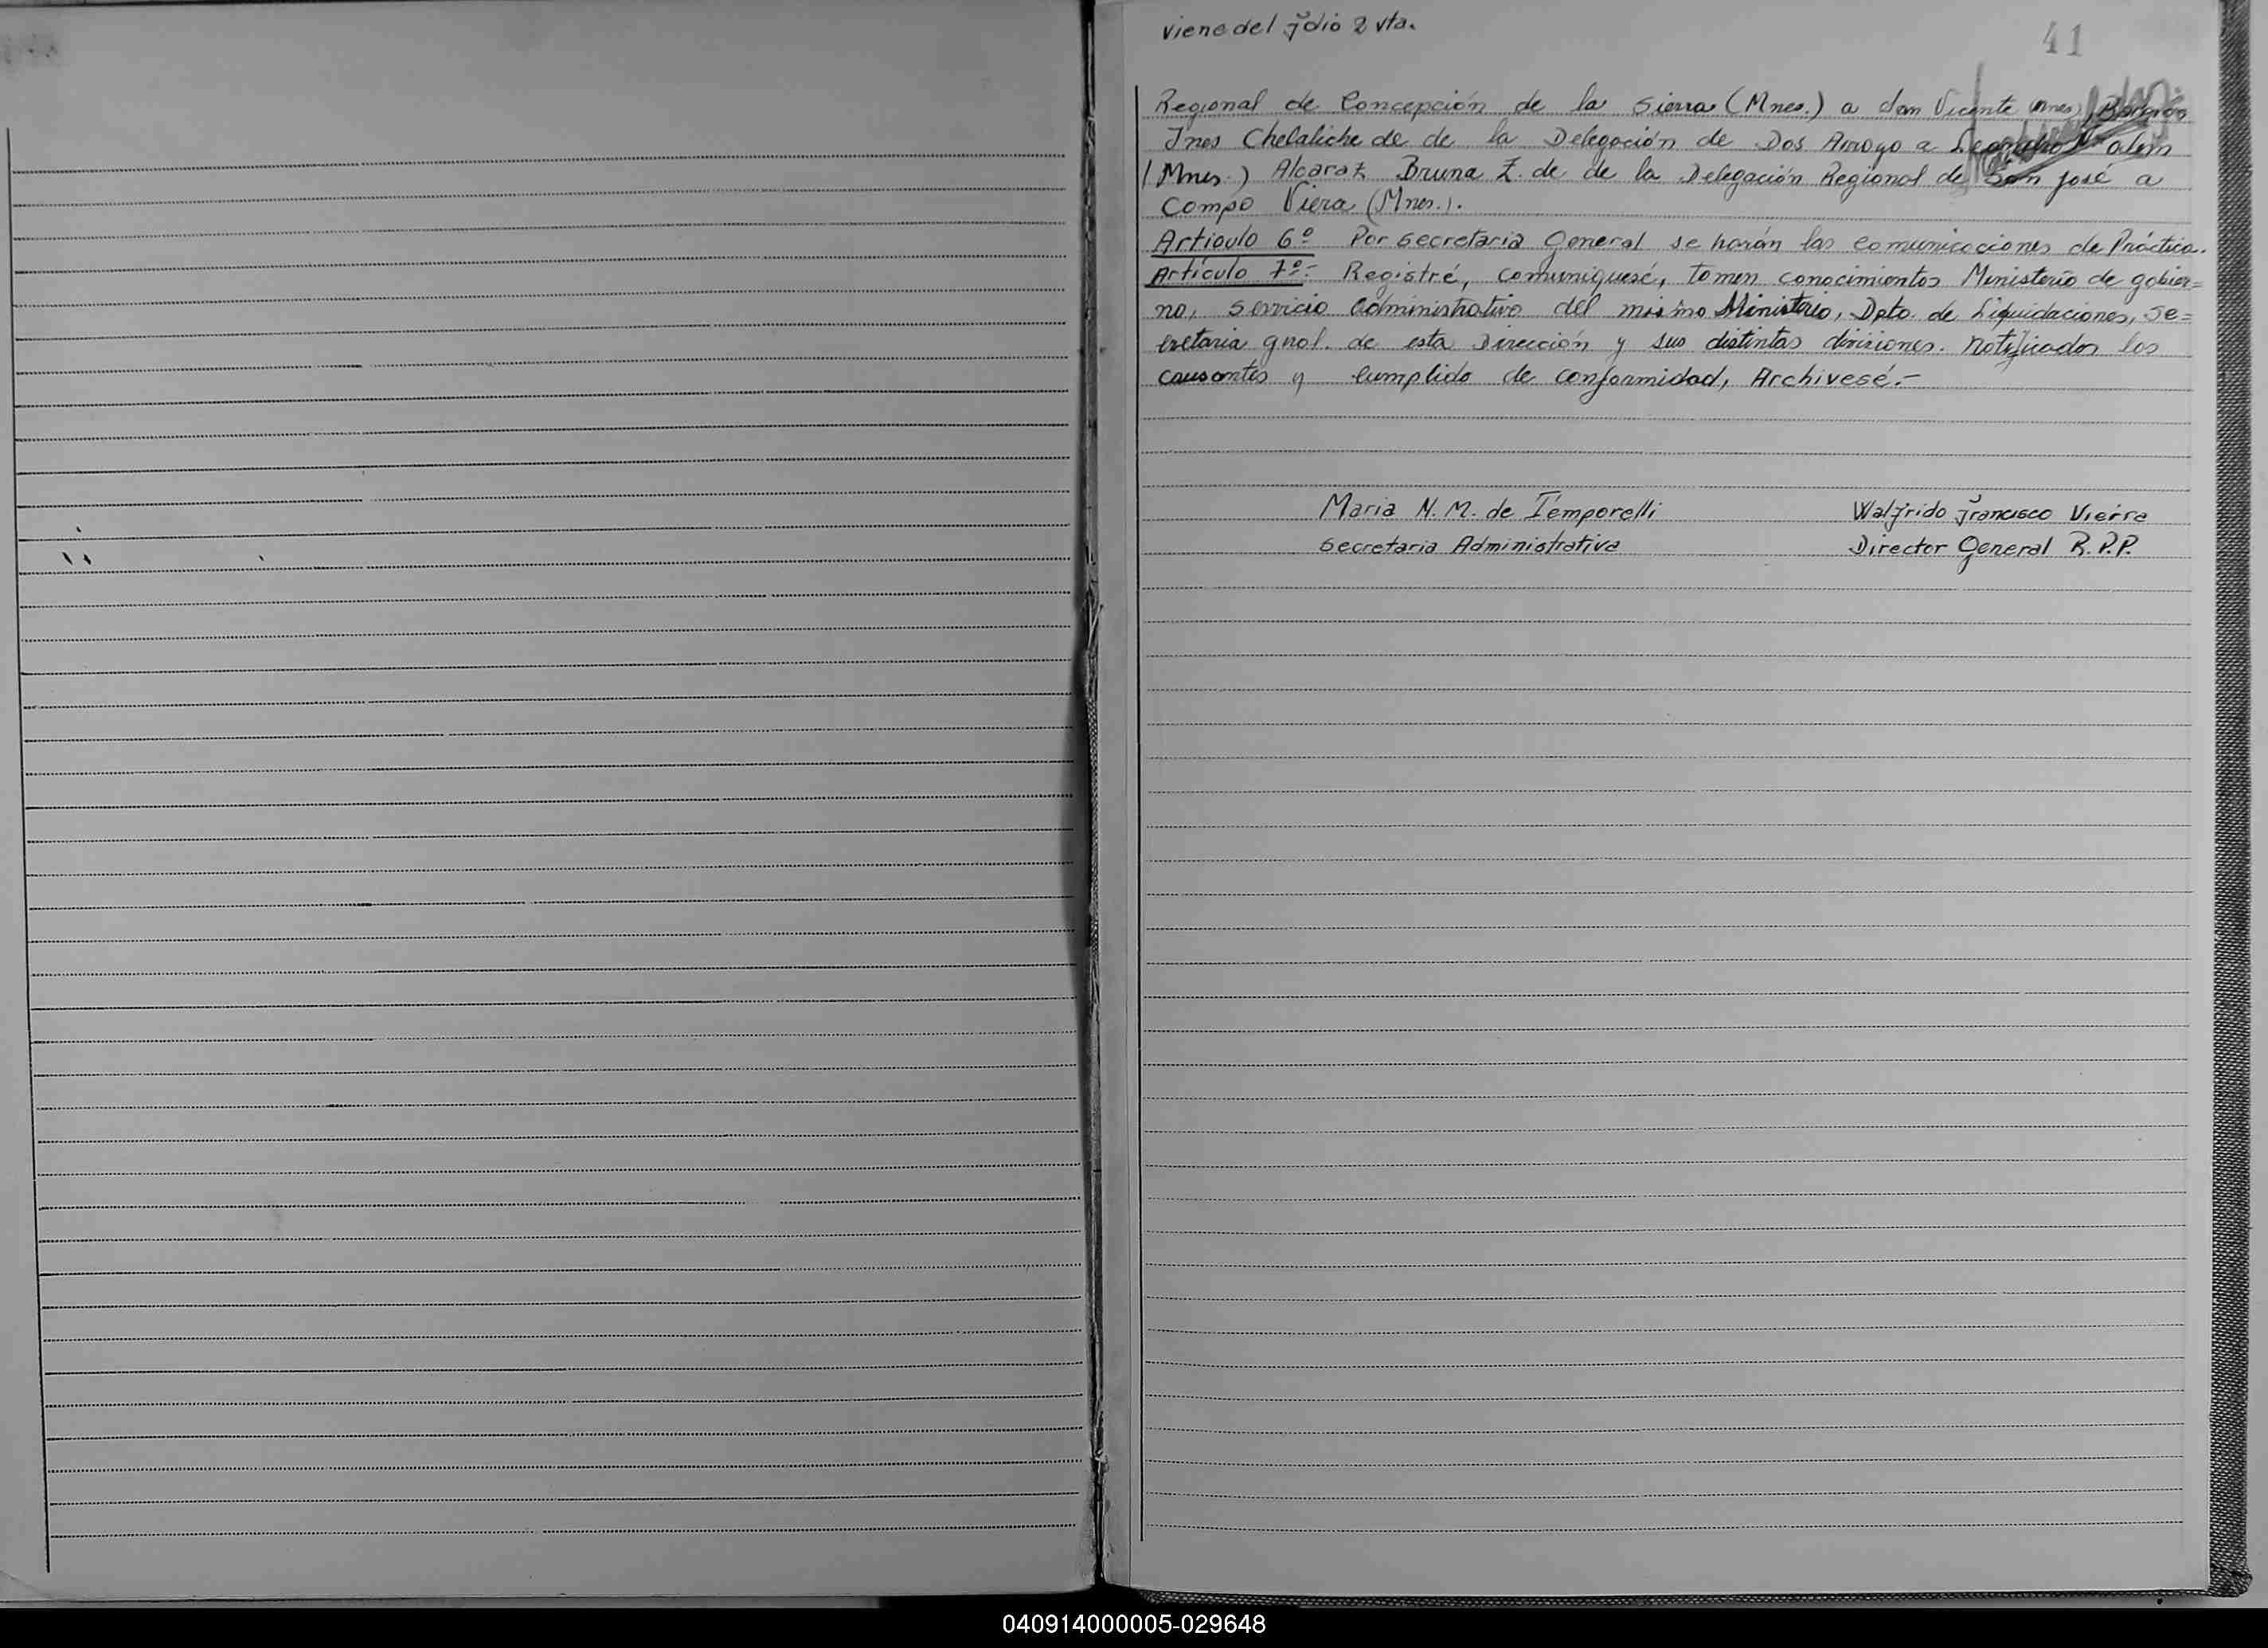 viene del folio 2 vta.
41
Regional de Concepción de la Sierra (Mnes.) a don Vicente (Mnes)
Ines Chelaliche de de la Delegación de Dos Arroyo a Leandro N alem
(Mnes.) Alcaraz Bruna Z. de de la Delegación Regional de San José a
Campo Viera (Mnes.).
Artículo 6º Por secretaria General se harán las comunicaciones de Práctica.
Artículo 7º:- Registré, comuniquesé, tomen conocimientos Ministerio de gobier=
no, servicio administrativo del mismo Ministerio, Dpto. de Liquidaciones, Se=
cretaria gnal. de esta Dirección y sus distintas divisiones. notificados los
causantes y cumplido de conformidad, Archivesé.-
Maria N. M. de Témporelli
Walfrido Francisco Vierra
Secretaria Administrativa
Director General R.P.P.
040914000005-029648